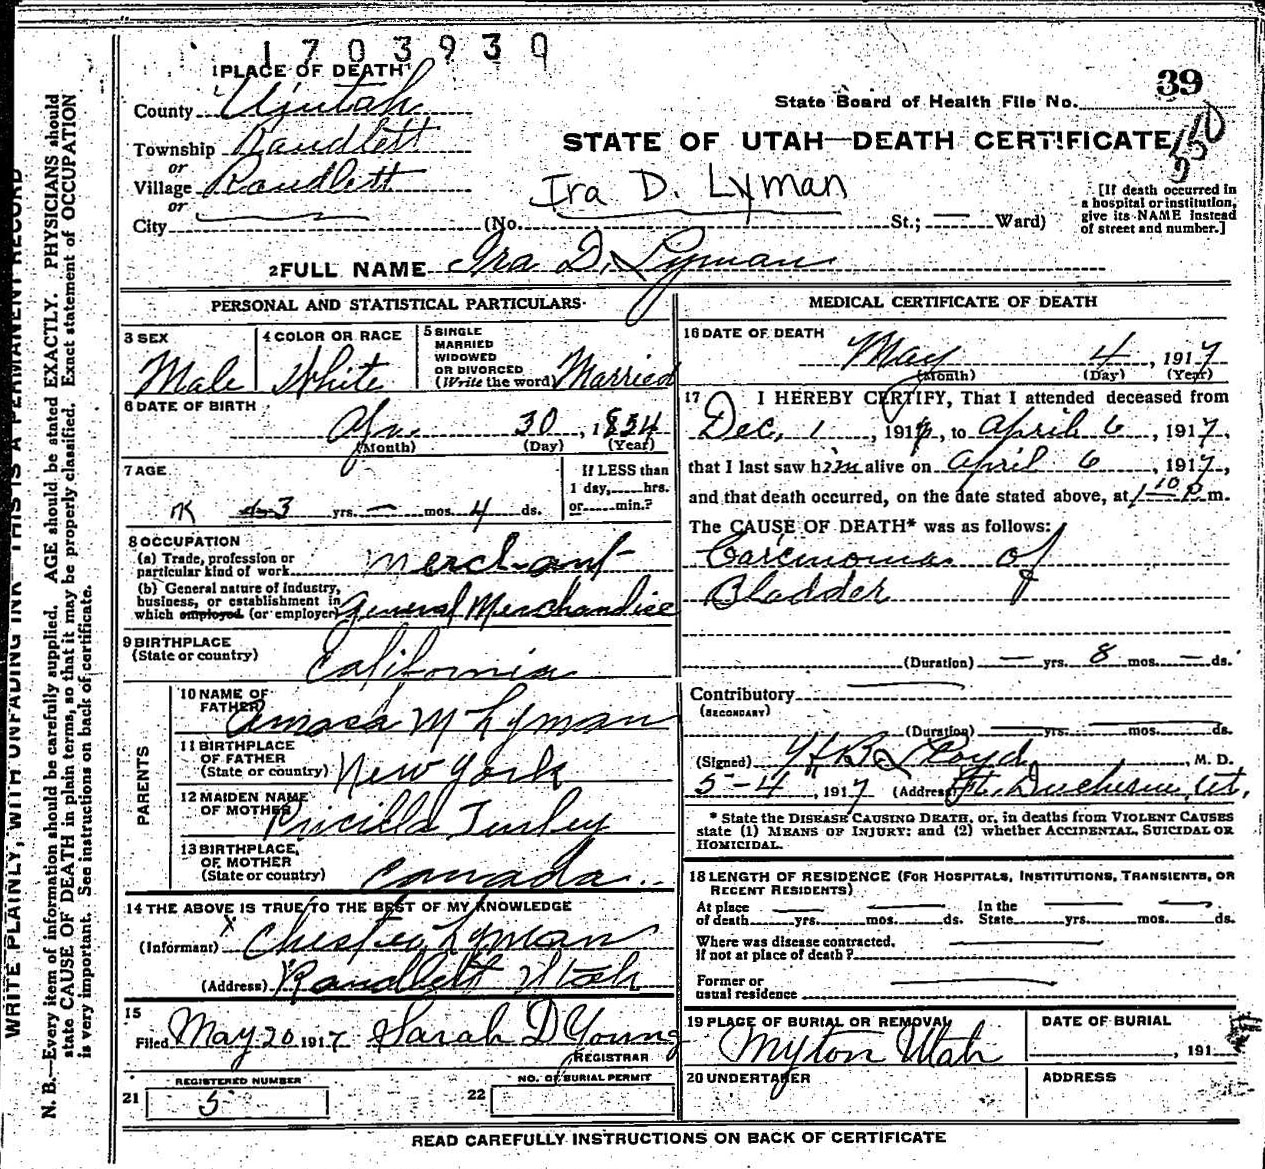 1 7 0 3 9 3 0
1 PLACE OF DEATH
39
County Uintah
State Board of Health File No.
Township Randlett
STATE OF UTAH—DEATH CERTIFICATE
or
Village Randlett
Ira D. Lyman
[If death occurred in a hospital or institution, give its NAME instead of street and number.]
or
City (No. St.; Ward)
2 FULL NAME Ira D. Lyman
PERSONAL AND STATISTICAL PARTICULARS
3 SEX Male
4 COLOR OR RACE White
5 SINGLE MARRIED WIDOWED OR DIVORCED (Write the word) Married
6 DATE OF BIRTH
30, 1854
(Month) (Day) (Year)
7 AGE
3 yrs. — mos. 4 ds.
If LESS than 1 day, hrs. or min.?
8 OCCUPATION
(a) Trade, profession or particular kind of work Merchant
(b) General nature of industry, business, or establishment in which employed (or employer) General Merchandise
9 BIRTHPLACE
(State or country) California
PARENTS
10 NAME OF FATHER Amasa M Lyman
11 BIRTHPLACE OF FATHER (State or country) New York
12 MAIDEN NAME OF MOTHER Pricilla Turley
13 BIRTHPLACE OF MOTHER (State or country) Canada
14 THE ABOVE IS TRUE TO THE BEST OF MY KNOWLEDGE
(Informant) X Chester Lyman
(Address) Randlett Utah
15
Filed May 20 1917 Sarah D Young
REGISTRAR
21 REGISTERED NUMBER 5
22 NO. OF BURIAL PERMIT
MEDICAL CERTIFICATE OF DEATH
16 DATE OF DEATH
May 4, 1917
(Month) (Day) (Year)
17 I HEREBY CERTIFY, That I attended deceased from
Dec, 1, 191 , to April 6, 1917,
that I last saw him alive on April 6, 1917,
and that death occurred, on the date stated above, at 1 10 P m.
The CAUSE OF DEATH* was as follows:
Carcinoma of
Bladder
(Duration) — yrs. 8 mos. — ds.
Contributory
(SECONDARY)
(Duration) yrs. mos. ds.
(Signed) H B Lloyd, M. D.
5-4, 1917 (Address) Ft. Duchesne, Ut,
* State the DISEASE CAUSING DEATH, or, in deaths from VIOLENT CAUSES
state (1) MEANS OF INJURY: and (2) whether ACCIDENTAL, SUICIDAL OR
HOMICIDAL.
18 LENGTH OF RESIDENCE (FOR HOSPITALS, INSTITUTIONS, TRANSIENTS, OR
RECENT RESIDENTS)
At place of death yrs. mos. ds. In the State yrs. mos. ds.
Where was disease contracted,
If not at place of death?
Former or
usual residence
19 PLACE OF BURIAL OR REMOVAL
Myton Utah
DATE OF BURIAL
, 191
20 UNDERTAKER
ADDRESS
READ CAREFULLY INSTRUCTIONS ON BACK OF CERTIFICATE
WRITE PLAINLY, WITH UNFADING INK—THIS IS A PERMANENT RECORD
N. B.—Every item of information should be carefully supplied. AGE should be stated EXACTLY. PHYSICIANS should
state CAUSE OF DEATH in plain terms, so that it may be properly classified. Exact statement of OCCUPATION
is very important. See instructions on back of certificate.